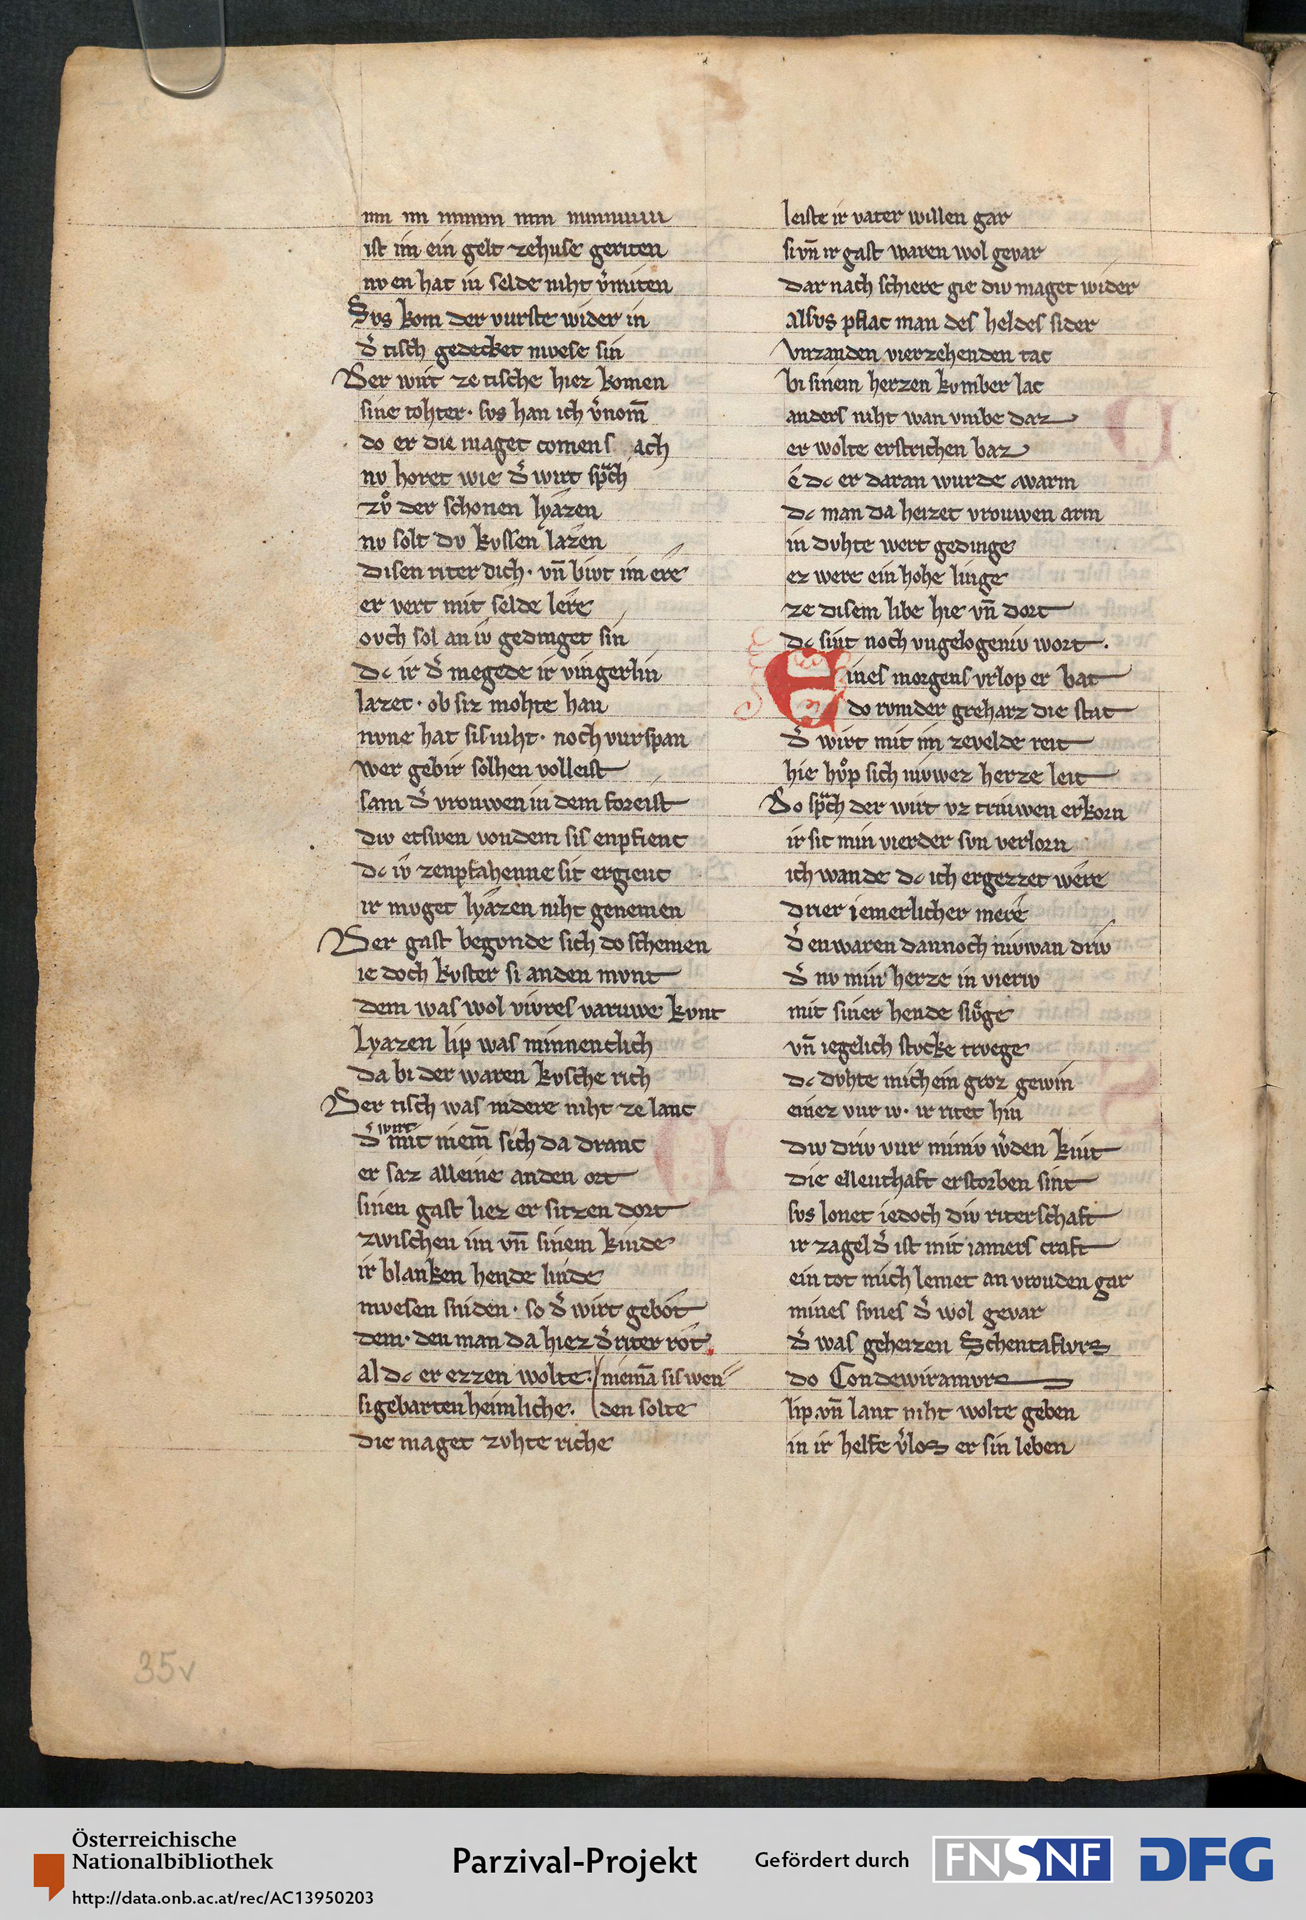 ist im ein gelt zehuse geriten
nv en hat in selde niht v̓miten
Svs kom der vurste wider in
d̓ tisch gedecket mvese sin
Der wirt ze tische hiez komen
sine tohter · svs han ich v̓nom̄
do er die maget comen s ach
nv horet wie d̓ wirt sp̃ch
zvͦ der schonen lyazen
nv solt dv kvssen lazen
disen riter dich · vn̄ bivt im ere
er vert mit selde lere
ovch sol an iv̓ gedinget sin
dc ir d̓ megede ir vingerlin
lazet · ob siz mohte han
nvne hat sis niht · noch vurspan
wer gebir solhen volleist
sam d̓ vrouwen in dem foreist
div etswen vondem sis enpfienc
dc iv̓ zenpfahenne sit ergienc
ir mvget lyazen niht genemen
Der gast begvnde sich do schemen
ie doch kvster si anden mvnt
dem was wol vivres varuwe kvnt
Lyazen lip was minnenclich
da bi der waren kvsche rich
Der tisch was nidere niht ze lanc
d̓ wirt mit niem̄ sich da dranc
er saz alleine anden ort
sinen gast liez er sitzen dort
zwischen im vn̄ sinem kinde
ir blanken hende linde
mvesen sniden · so d̓ wirt gebot
dem · den man da hiez d̓ riter rot
al dc er ezzen wolte · niemā sis wen⸗
si gebarten heimliche · den solte
die maget zvhte riche
leiste ir vater willen gar
si vn̄ ir gast waren wol gevar
dar nach schiere gie div maget wider
alsvs pflac man des heldes sider
vnzanden vierzehenden tac
bi sinem herzen kvmber lac
anders niht wan vmbe daz
er wolte erstrichen baz
e dc er daran wurde warm
dc man da heizet vrouwen arm
in dvhte wert gedinge
ez were ein hohe linge
ze disem libe hie vn̄ dort
dc sint noch vngelogeniv wort ·
Eines morgens vrlop er bat
do rvmder greharz die stat
d̓ wirt mit im zevelde reit
hie hvͦp sich nivwez herze leit
Do sp̃ch der wirt vz triuwen erkorn
ir sit min vierder svn verlorn
ich wande dc ich ergezzet were
drier iemerlicher mere
d̓ enwaren dannoch nivwan driv
d̓ nv min herze in vieriv
mit siner hende slvͤge
vn̄ iegelich stvcke trvege
dc dvhte mich ein groz gewin
einez vur iv · ir ritet hin
div driv vur miniv w̓den kint
die ellenthaft erstorben sint
svs lonet iedoch div riterschaft
ir zagel d̓ ist mit iamers craft
ein tot mich lemet an vrouden gar
mines svnes d̓ wol gevar
d̓ was geheizen Schentaflvrs
do Condewiramvrs
lip · vn̄ lant niht wolte geben
in ir helfe v̓los er sin leben
35v
Österreichische
Nationalbibliothek
http://data.onb.ac.at/rec/AC13950203
Parzival-Projekt
Gefördert durch
FNSNF
DFG